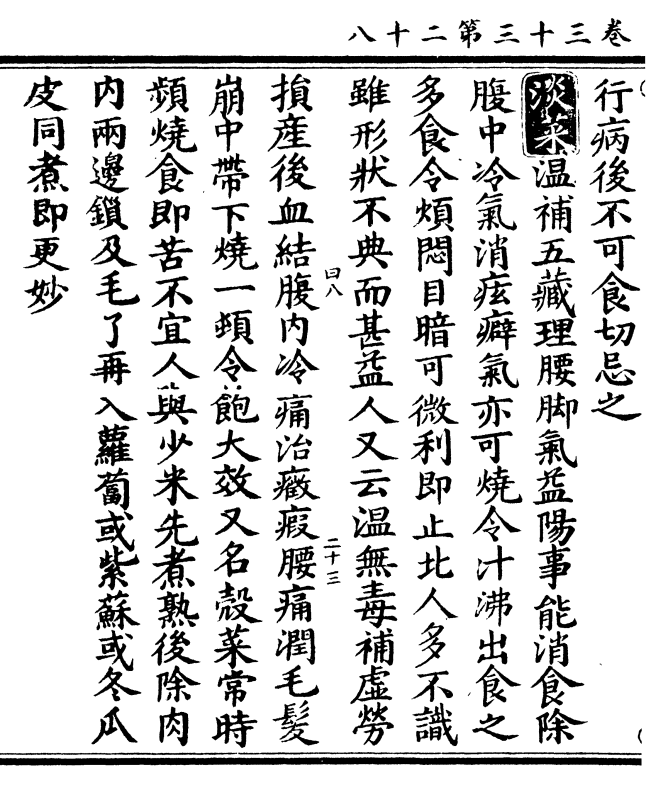 卷三十三第二十八
行病後不可食切忌之
淡菜温補五藏理腰脚氣益陽事能消食除
腹中冷氣消痃癖氣亦可燒令汁沸出食之
多食令煩悶目暗可微利即止北人多不識
雖形狀不典而甚益人又云温無毒補虛勞
曰八
二十三
損産後血結腹内冷痛治癥瘕腰痛潤毛髮
崩中帶下燒一頓令飽大效又名殻菜常時
頻燒食即苦不宜人與少米先煮熟後除肉
内兩邊鎖及毛了再入蘿蔔或紫蘇或冬瓜
皮同煮即更妙